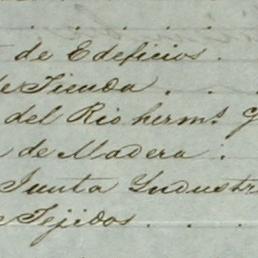 de Edificios.
de Tienda . . .
del Rio herm.s
de Madera .
Junta Industr
Tejidos . . .